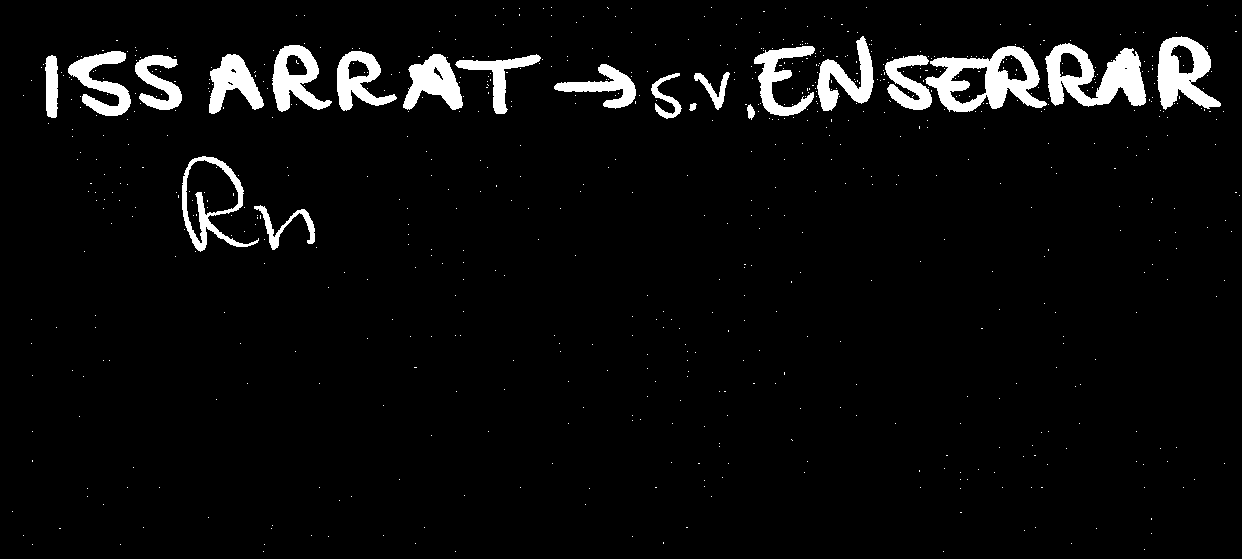 ISSARRAT → s.v. ENSERRAR
Rn